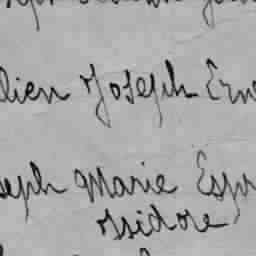 lien Joseph Ern
seph Marie Esp
Issidore